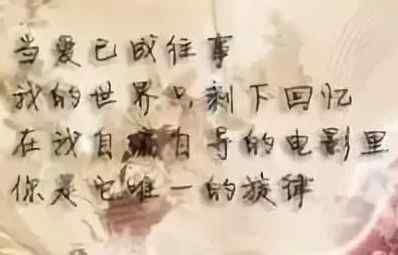 当爱已成往事
我的世界只剩下回忆
在我自自导的电影里
你是它唯一的旋律